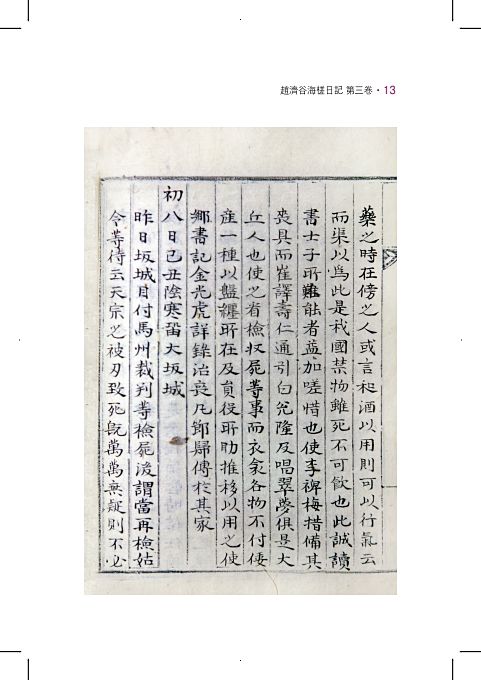 趙濟谷海槎日記 第三卷 · 13
藥之時在傍之人或言和酒以用則可以行氣云
而渠以爲此是我國禁物雖死不可飮也此誠讀
書士子所難能者益加嗟惜也使李裨梅措備其
喪具而崔譯壽仁通引白兌隆及唱翠夢俱是大
丘人也使之看檢収屍等事而衣衾各物不付倭
産一種以盤纏所在及員役所助推移以用之使
鄕書記金光虎詳錄治喪凡節歸傳於其家
初八日己丑陰寒留大坂城
昨日坂城目付馬州裁判等檢屍後謂當再檢姑
令等待云天宗之被刃致死旣萬萬無疑則不必